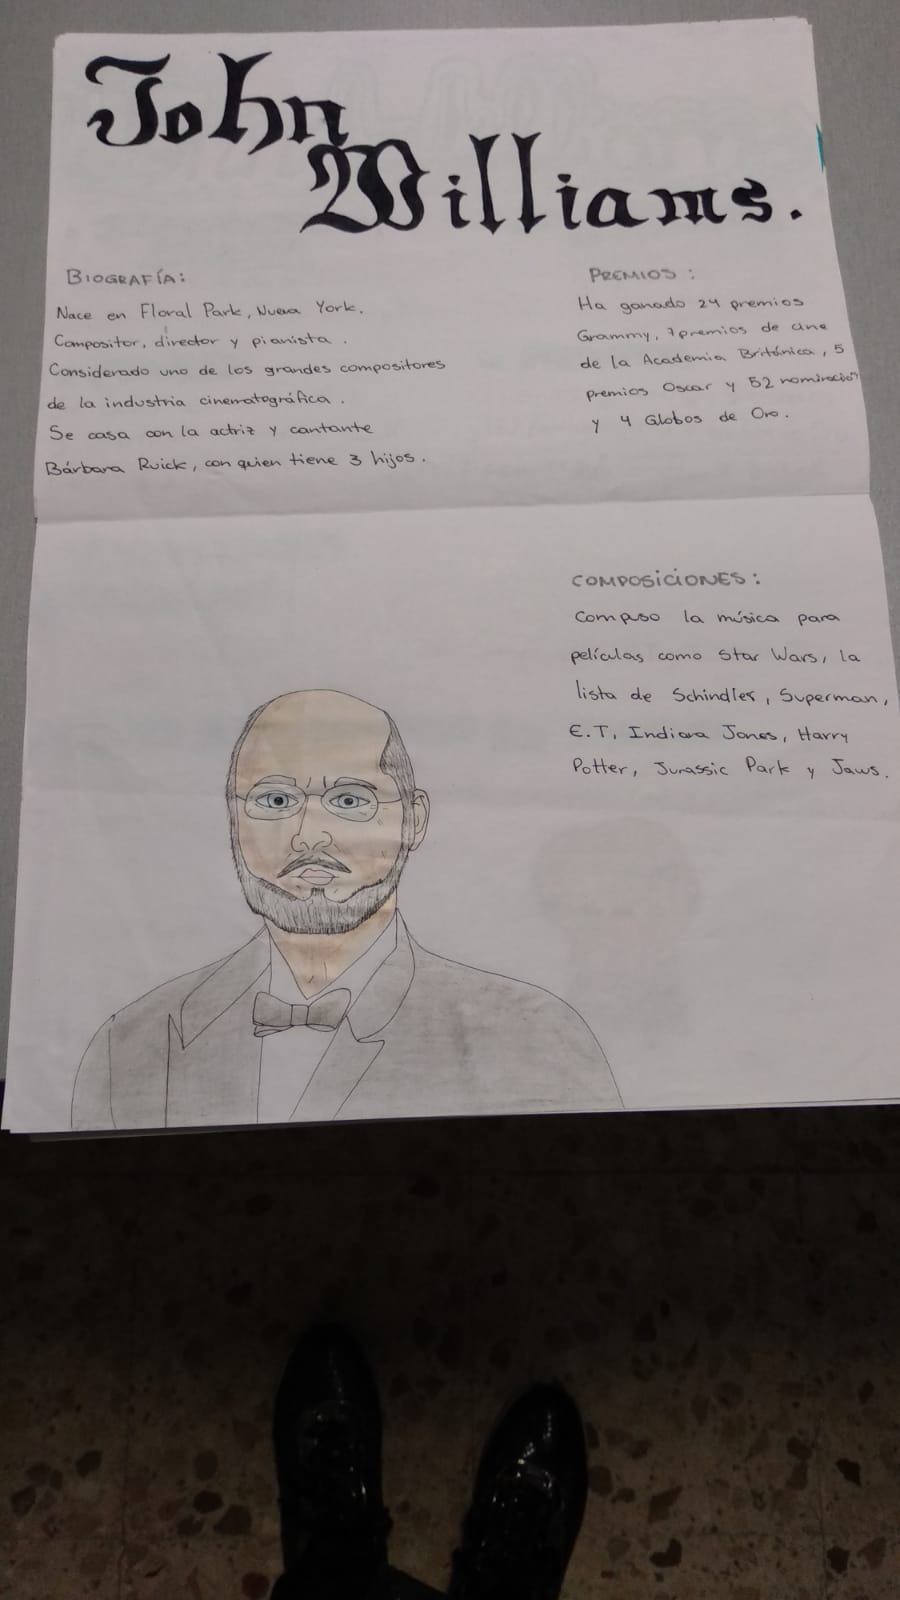 John
Williams.
BIOGRAFÍA:
Nace en Floral Park, Nueva York.
Compositor, director y pianista.
Considerado uno de los grandes compositores
de la industria cinematográfica.
Se casa con la actriz y cantante
Bárbara Ruick, con quien tiene 3 hijos.
PREMIOS:
Ha ganado 24 premios
Grammy, 7 premios de cine
de la Academia Británica, 5
premios Oscar y 52 nominacion
y 4 Globos de Oro.
COMPOSICIONES:
Compuso la música para
películas como Star Wars, la
lista de Schindler, Superman,
E.T, Indiana Jones, Harry
Potter, Jurassic Park y Jaws.